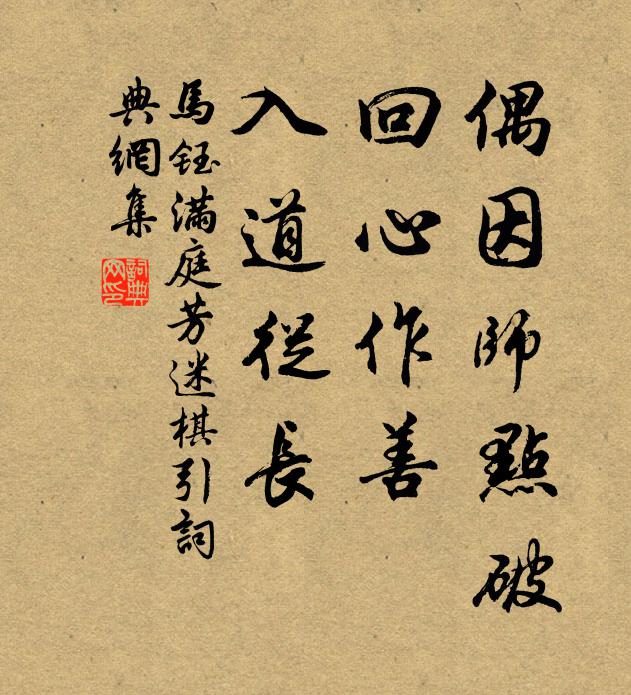 偶因師點破
回心作善
入道從長
馬鈺滿庭芳迷棋引詞
典網集
詞典網印